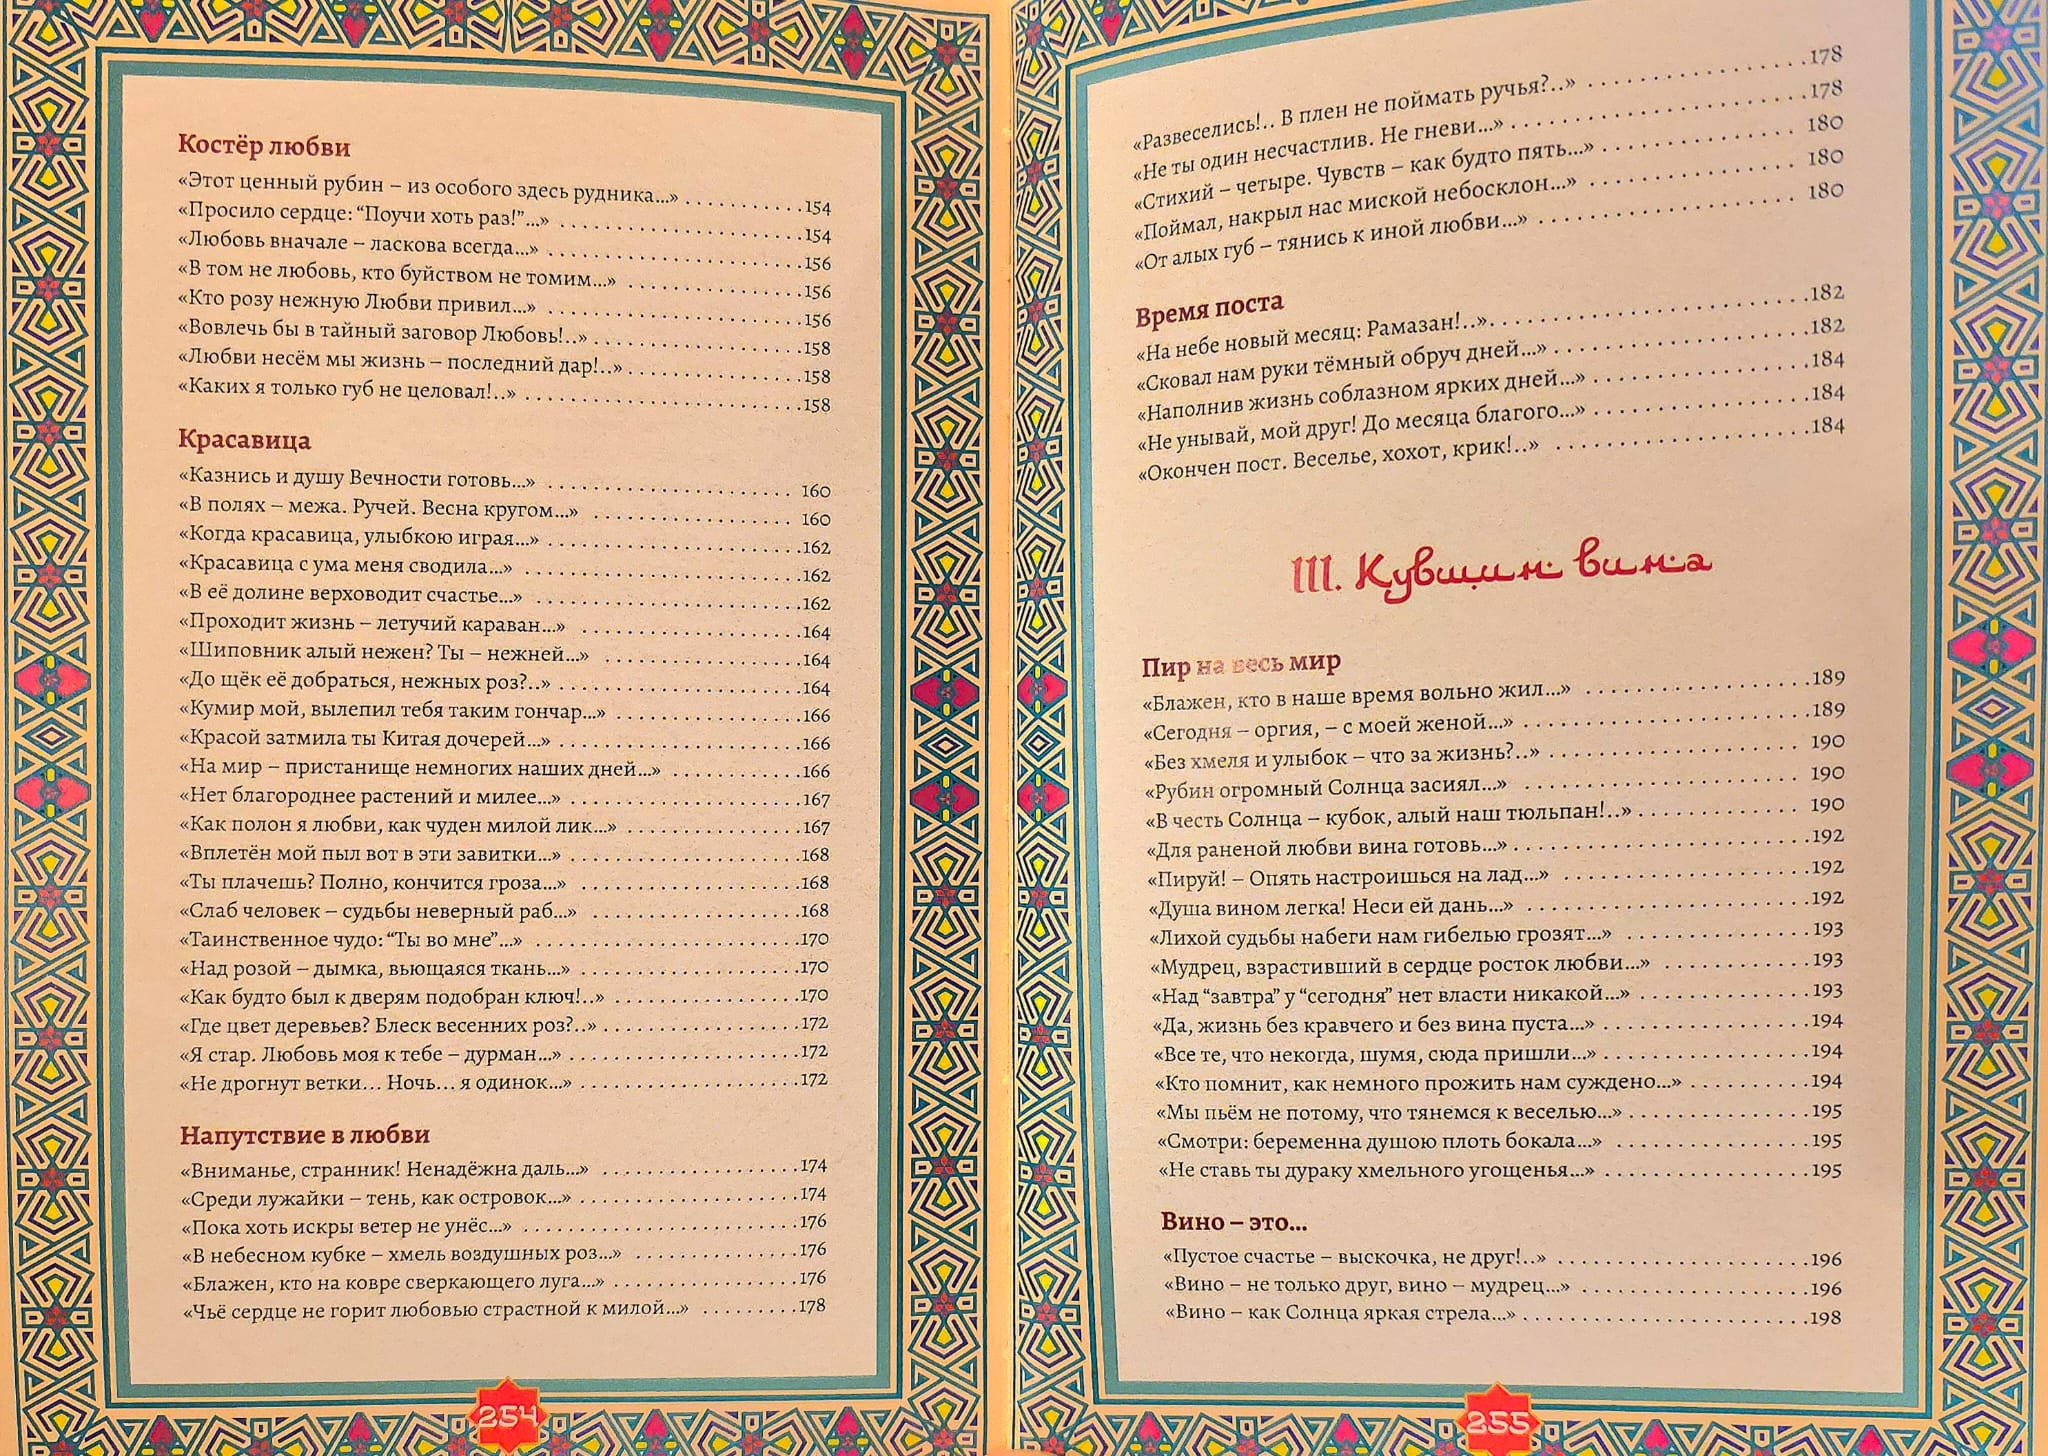 Костёр любви
«Этот ценный рубин – из особого здесь рудника...» 154
«Просило сердце: “Поучи хоть раз!”...» 154
«Любовь вначале – ласкова всегда...» 156
«В том не любовь, кто буйством не томим...» 156
«Кто розу нежную Любви привил...» 156
«Вовлечь бы в тайный заговор Любовь!..» 158
«Любви несём мы жизнь – последний дар!..» 158
«Каких я только губ не целовал!..» 158
Красавица
«Казнись и душу Вечности готовь...» 160
«В полях – межа. Ручей. Весна кругом...» 160
«Когда красавица, улыбкою играя...» 162
«Красавица с ума меня сводила...» 162
«В её долине верховодит счастье...» 162
«Проходит жизнь – летучий караван...» 164
«Шиповник алый нежен? Ты – нежней...» 164
«До щёк её добраться, нежных роз?..» 164
«Кумир мой, вылепил тебя таким гончар...» 166
«Красой затмила ты Китая дочерей...» 166
«На мир – пристанище немногих наших дней...» 166
«Нет благороднее растений и милее...» 167
«Как полон я любви, как чуден милой лик...» 167
«Вплетён мой пыл вот в эти завитки...» 168
«Ты плачешь? Полно, кончится гроза...» 168
«Слаб человек – судьбы неверный раб...» 168
«Таинственное чудо: “Ты во мне”...» 170
«Над розой – дымка, вьющаяся ткань...» 170
«Как будто был к дверям подобран ключ!..» 170
«Где цвет деревьев? Блеск весенних роз?..» 172
«Я стар. Любовь моя к тебе – дурман...» 172
«Не дрогнут ветки... Ночь... я одинок...» 172
Напутствие в любви
«Вниманье, странник! Ненадёжна даль...» 174
«Среди лужайки – тень, как островок...» 174
«Пока хоть искры ветер не унёс...» 176
«В небесном кубке – хмель воздушных роз...» 176
«Блажен, кто на ковре сверкающего луга...» 176
«Чьё сердце не горит любовью страстной к милой...» 178
254
«Развеселись!.. В плен не поймать ручья?..» 178
«Не ты один несчастлив. Не гневи...» 178
«Стихий – четыре. Чувств – как будто пять...» 180
«Поймал, накрыл нас миской небосклон...» 180
«От алых губ – тянись к иной любви...» 180
Время поста
«На небе новый месяц: Рамазан!..» 182
«Сковал нам руки тёмный обруч дней...» 182
«Наполнив жизнь соблазном ярких дней...» 184
«Не унывай, мой друг! До месяца благого...» 184
«Окончен пост. Веселье, хохот, крик!..» 184
III. Кувшин вина
Пир на весь мир
«Блажен, кто в наше время вольно жил...» 189
«Сегодня – оргия, – с моей женой...» 189
«Без хмеля и улыбок – что за жизнь?..» 190
«Рубин огромный Солнца засиял...» 190
«В честь Солнца – кубок, алый наш тюльпан!..» 190
«Для раненой любви вина готовь...» 192
«Пируй! – Опять настроишься на лад...» 192
«Душа вином легка! Неси ей дань...» 192
«Лихой судьбы набеги нам гибелью грозят...» 193
«Мудрец, взрастивший в сердце росток любви...» 193
«Над “завтра” у “сегодня” нет власти никакой...» 193
«Да, жизнь без кравчего и без вина пуста...» 194
«Все те, что некогда, шумя, сюда пришли...» 194
«Кто помнит, как немного прожить нам суждено...» 194
«Мы пьём не потому, что тянемся к веселью...» 195
«Смотри: беременна душою плоть бокала...» 195
«Не ставь ты дураку хмельного угощенья...» 195
Вино – это...
«Пустое счастье – выскочка, не друг!..» 196
«Вино – не только друг, вино – мудрец...» 196
«Вино – как Солнца яркая стрела...» 198
255